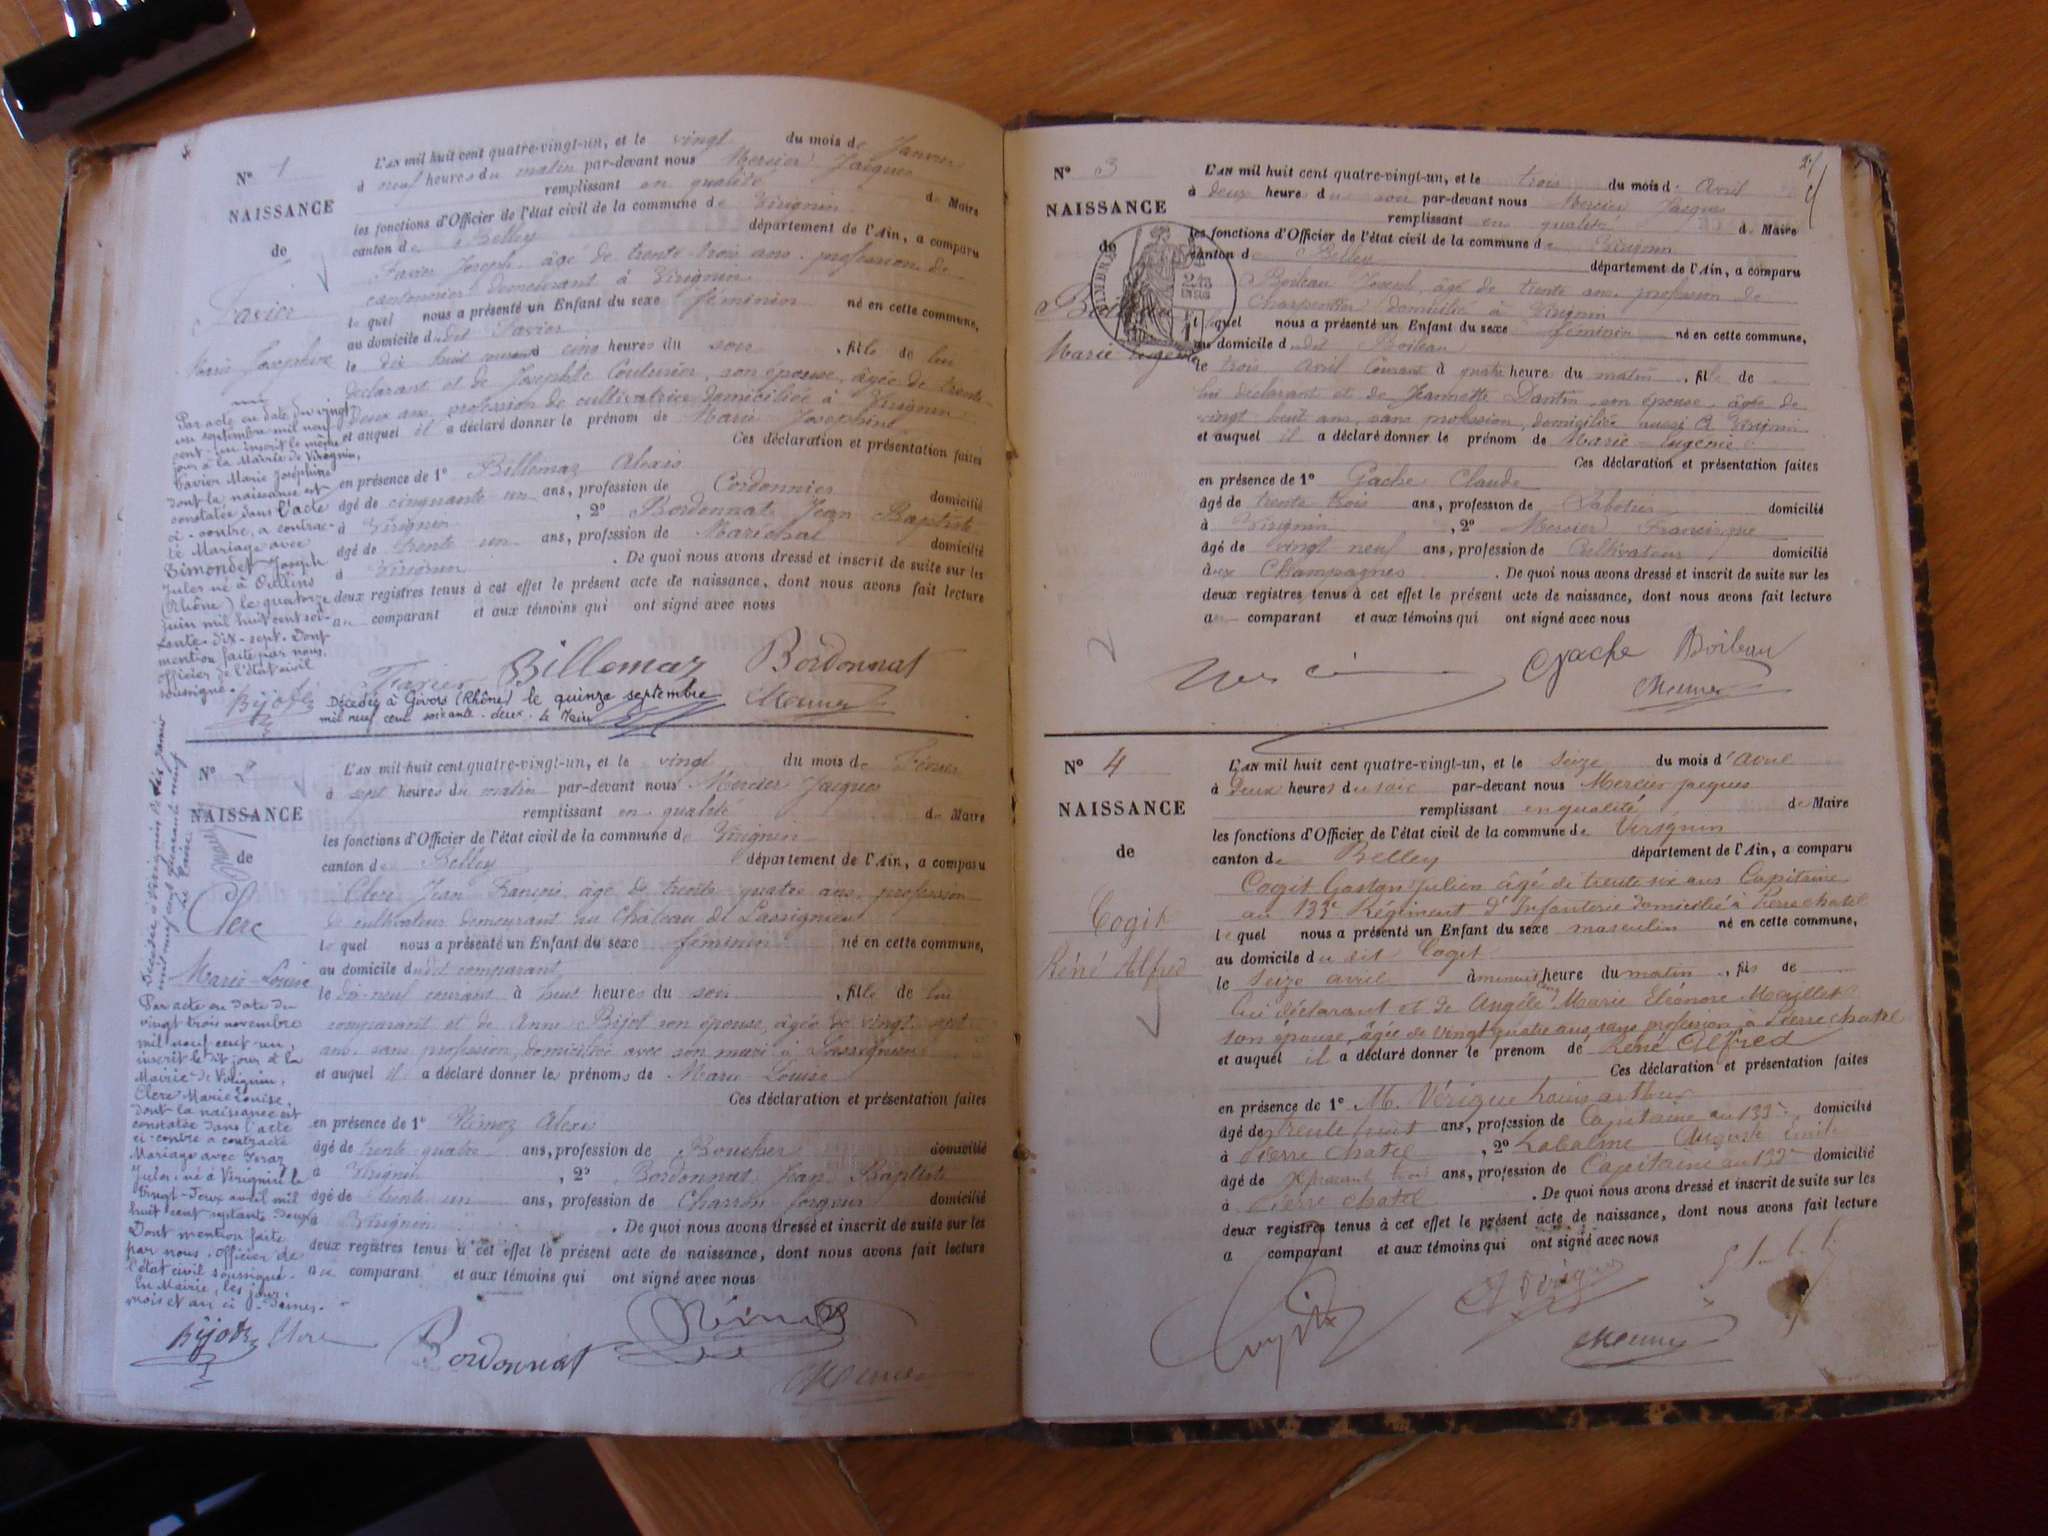 N° 1
NAISSANCE
de
Favier
Marie Josephine
L'AN mil huit cent quatre-vingt-un, et le vingt du mois de Janvier
à neuf heures du matin par-devant nous Mercier Jacques
remplissant en qualité de Maire
les fonctions d'Officier de l'état civil de la commune de Virignin
canton de Belley département de l'Ain, a comparu
Favier Joseph âgé de trente trois ans profession de
cantonnier demeurant à Virignin
lequel nous a présenté un Enfant du sexe féminin né en cette commune,
au domicile dudit Favier
le dix huit courant à cinq heures du soir, fille de lui
déclarant et de Josephte Couturier, son épouse, âgée de trente
deux ans profession de cultivatrice domiciliée à Virignin
et auquel il a déclaré donner le prénom de Marie Josephine
Ces déclaration et présentation faites
en présence de 1° Billemaz Alexis
âgé de cinquante un ans, profession de Cordonnier domicilié
à Virignin, 2° Bordonnat Jean Baptiste
âgé de trente un ans, profession de Maréchal domicilié
à Virignin. De quoi nous avons dressé et inscrit de suite sur les
deux registres tenus à cet effet le présent acte de naissance, dont nous avons fait lecture
au comparant et aux témoins qui ont signé avec nous
Par acte en date du vingt
un septembre mil neuf
cent un inscrit le même
jour à la Mairie de Virignin,
Favier Marie Joséphine
dont la naissance est
constatée dans l'acte
ci-contre, a contrac-
té Mariage avec
Simondet Joseph
Jules né à Oullins
(Rhône) le quatorze
juin mil huit cent soi-
xante-dix-sept. Dont
mention faite par nous,
officier de l'état civil
soussigné.
Bijot
Favier Billemaz Bordonnat
Mercier
Décédée à Givors (Rhône) le quinze septembre
mil neuf cent soixante-deux. Le Maire
N° 2
NAISSANCE
de
Clerc
Marie Louise
L'AN mil huit cent quatre-vingt-un, et le vingt du mois de Février
à sept heures du matin par-devant nous Mercier Jacques
remplissant en qualité de Maire
les fonctions d'Officier de l'état civil de la commune de Virignin
canton de Belley département de l'Ain, a comparu
Clerc Jean François âgé de trente quatre ans, profession
de cultivateur demeurant au Château de Lassignieu
lequel nous a présenté un Enfant du sexe féminin né en cette commune,
au domicile dudit comparant
le dix-neuf courant à huit heures du soir, fille de lui
comparant et de Anne Bijot son épouse, âgée de vingt sept
ans sans profession, domiciliée avec son mari à Lassignieu
et auquel il a déclaré donner les prénoms de Marie Louise
Ces déclaration et présentation faites
en présence de 1° Alexis
âgé de trente quatre ans, profession de Boucher domicilié
à Virignin, 2° Bordonnat Jean Baptiste
âgé de trente un ans, profession de Charron forgeur domicilié
à Virignin. De quoi nous avons dressé et inscrit de suite sur les
deux registres tenus à cet effet le présent acte de naissance, dont nous avons fait lecture
au comparant et aux témoins qui ont signé avec nous
Décédée à Virignin le dix janvier
mil neuf cent quarante neuf
Le Maire
Par acte en date du
vingt trois novembre
mil neuf cent un,
inscrit le dit jour à la
Mairie de Virignin,
Clerc Marie Louise,
dont la naissance est
constatée dans l'acte
ci-contre a contracté
Mariage avec
Jules, né à Virignin le
vingt-deux avril mil
huit cent septante deux
Dont mention faite
par nous, Officier de
l'état civil soussigné.
En Mairie, les jour,
mois et an ci-dessus.
Bijot Clerc Bordonnat
Mercier
N° 3
NAISSANCE
de
Boileau
Marie Eugénie
TIMBRE
L'AN mil huit cent quatre-vingt-un, et le trois du mois d' Avril
à deux heure du soir par-devant nous Mercier Jacques
remplissant en qualité de Maire
les fonctions d'Officier de l'état civil de la commune de Virignin
canton de Belley département de l'Ain, a comparu
Boileau Joseph, âgé de trente ans profession de
Charpentier domicilié à Virignin
lequel nous a présenté un Enfant du sexe féminin né en cette commune,
au domicile dudit Boileau
le trois avril courant à quatre heure du matin, fille de
lui déclarant et de Jeannette Dantin son épouse âgée de
vingt huit ans, sans profession, domiciliée aussi à Virignin
et auquel il a déclaré donner le prénom de Marie-Eugénie
Ces déclaration et présentation faites
en présence de 1° Gache Claude
âgé de trente trois ans, profession de Sabotier domicilié
à Virignin, 2° Mercier Francisque
âgé de vingt neuf ans, profession de Cultivateur domicilié
aux Champagnes. De quoi nous avons dressé et inscrit de suite sur les
deux registres tenus à cet effet le présent acte de naissance, dont nous avons fait lecture
au comparant et aux témoins qui ont signé avec nous
Gache Boileau
Mercier
N° 4
NAISSANCE
de
Cogit
Réné Alfred
L'AN mil huit cent quatre-vingt-un, et le seize du mois d'avril
à Deux heures du soir par-devant nous Mercier Jacques
remplissant en qualité de Maire
les fonctions d'Officier de l'état civil de la commune de Virignin
canton de Belley département de l'Ain, a comparu
Cogit Gaston Julien âgé de trente six ans Capitaine
au 133e Régiment d'Infanterie domicilié à Pierre chatel
lequel nous a présenté un Enfant du sexe masculin né en cette commune,
au domicile du dit Cogit
le seize avril à minuit heure du matin, fils de
lui déclarant et de Angèle Marie Eléonore Maillet
son épouse, âgée de vingt quatre ans, sans profession à Pierre chatel
et auquel il a déclaré donner le prenom de Réné Alfred
Ces déclaration et présentation faites
en présence de 1° M. Vérigue Louis arthur
âgé de trente huit ans, profession de Capitaine au 133e domicilié
à Pierre chatel, 2° Labalme Auguste Emile
âgé de trois ans, profession de Capitaine au 133e domicilié
à Pierre chatel. De quoi nous avons dressé et inscrit de suite sur les
deux registres tenus à cet effet le présent acte de naissance, dont nous avons fait lecture
a comparant et aux témoins qui ont signé avec nous
Mercier